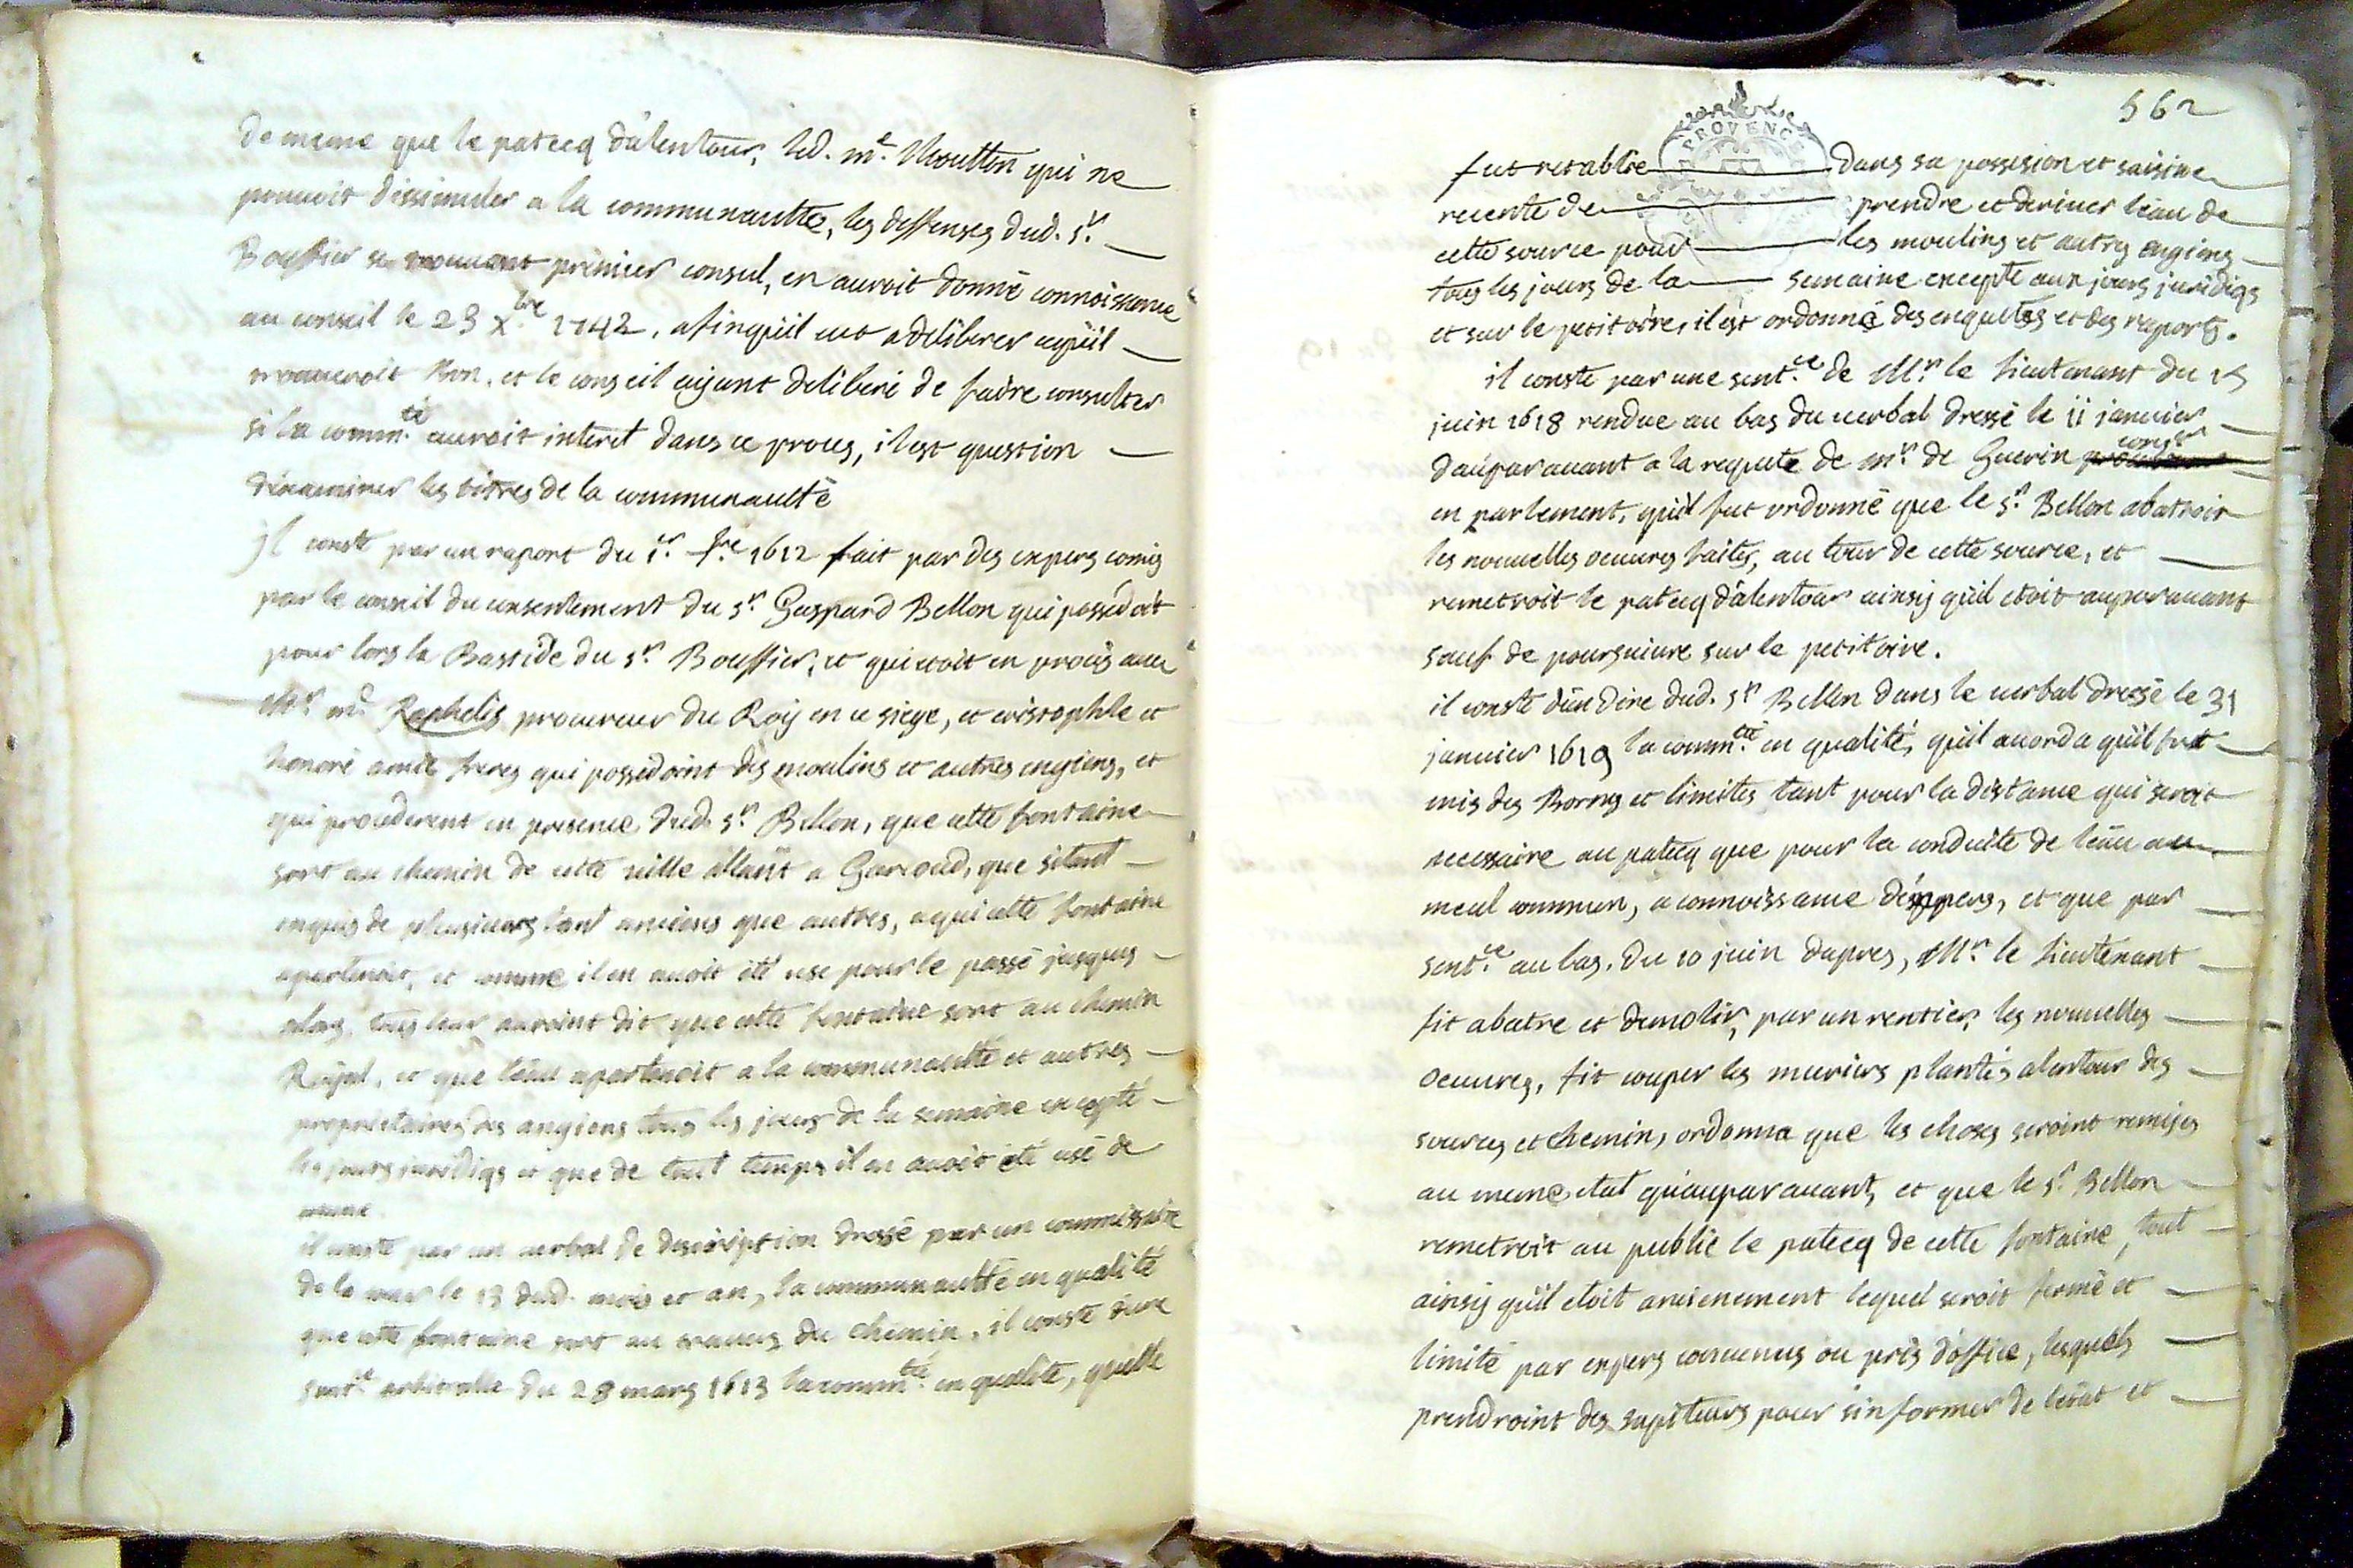 de meme que le patecq d'alentour, led. me. Moutton qui ne
pouuoit dissimuler a la communautté, les deffenses dud. sr.
Bouffier se trouuant premier consul, en auroit donné connoissance
au conseil le 23 xbre 1742, afinqu'il eut a deliberer cequ'il
trouueroit Bon, et le conseil aijant deliberé de faire consulter
si la commté. auroit interet dans ce proces, il est question
d'examiner les titres de la communauté
Jl conste par un raport du 1er. fre 1612 fait par des expers comis
par le conseil du consentement du sr. Gaspard Bellon qui possedoit
pour lors la Bastide du sr. Bouffier, et qui etoit en procés auec
Mr. me. Raphelis procureur du Roij en ce siege, et cristophle et
honoré amic freres qui possedoint des moulins et autres engiens, et
qui procederent en presence dud. sr. Bellon, que cette fontaine
sort au chemin de cette uille allant a Garcoud, que s'etant
enquis de plusieurs tant anciens que autres, a qui cette fontaine
apartenoit, et comme il en auoit eté usé pour le passé jusques
alors, tous leur auroint dit que cette fontaine sort au chemin
Roijal, et que l'eau apartenoit a la communautté et autres
proprietaires des angiens tous les jours de la semaine excepté
les jours juridiqs et que de tout temps il en auoit eté usé de
meme
il conste par un uerbal de description dressé par un commissaire
de la cour le 13 dud. mois et an, la communautté en qualité
que cette fontaine sort au trauers du chemin, il conste d'une
sentce arbitralle du 28 mars 1613 la commté. en qualité, qu'elle
562
PROVENCE
fut retablie dans sa possesion et saisine
recente de prendre et deriuer l'eau de
cette source pour les moulins et autres engiens
tous les jours de la semaine excepte aux jours juridiqs
et sur le petitoire, il est ordonné des enquettes et des raports.
il conste par une sentce. de Mr. le Lieutenant du 15
juin 1618 rendue au bas du uerbal dressé le 11 januier
d'auparauant a la requete de mr. de Guerin conser
en parlement, qu'il fut ordonné que le sr. Bellon abatroit
les nouuelles oeuures faites, au tour de cette source, et
remetroit le patecq d'alentour ainsij qu'il etoit auparauant
sauf de poursuiure sur le petitoire.
il conste d'un dire dud. sr Bellon dans le uerbal dressé le 31
januier 1619 la commté. en qualité, qu'il acorda qu'il fut
mis des Bornes et limites tant pour la distance qui seroit
necessaire au patecq que pour la conduite de l'eau au
meal commun, a connoissance d'expers, et que par
sentce. au bas. du 10 juin d'apres, Mr. le Lieutenant
fit abatre et demolir, par un rentier, les nouuelles
oeuures, fit couper les muriers plantés alentour des
sources et chemin, ordonna que les choses seroint remises
au meme etat qu'auparauant, et que le sr. Bellon
remetroit au public le patecq de cette fontaine, tout
ainsij qu'il etoit ancienement lequel seroit formé et
limité par expers conuenus ou pris d'office, lesquels
prendroint des sapiteurs pour s'informer de l'etat et